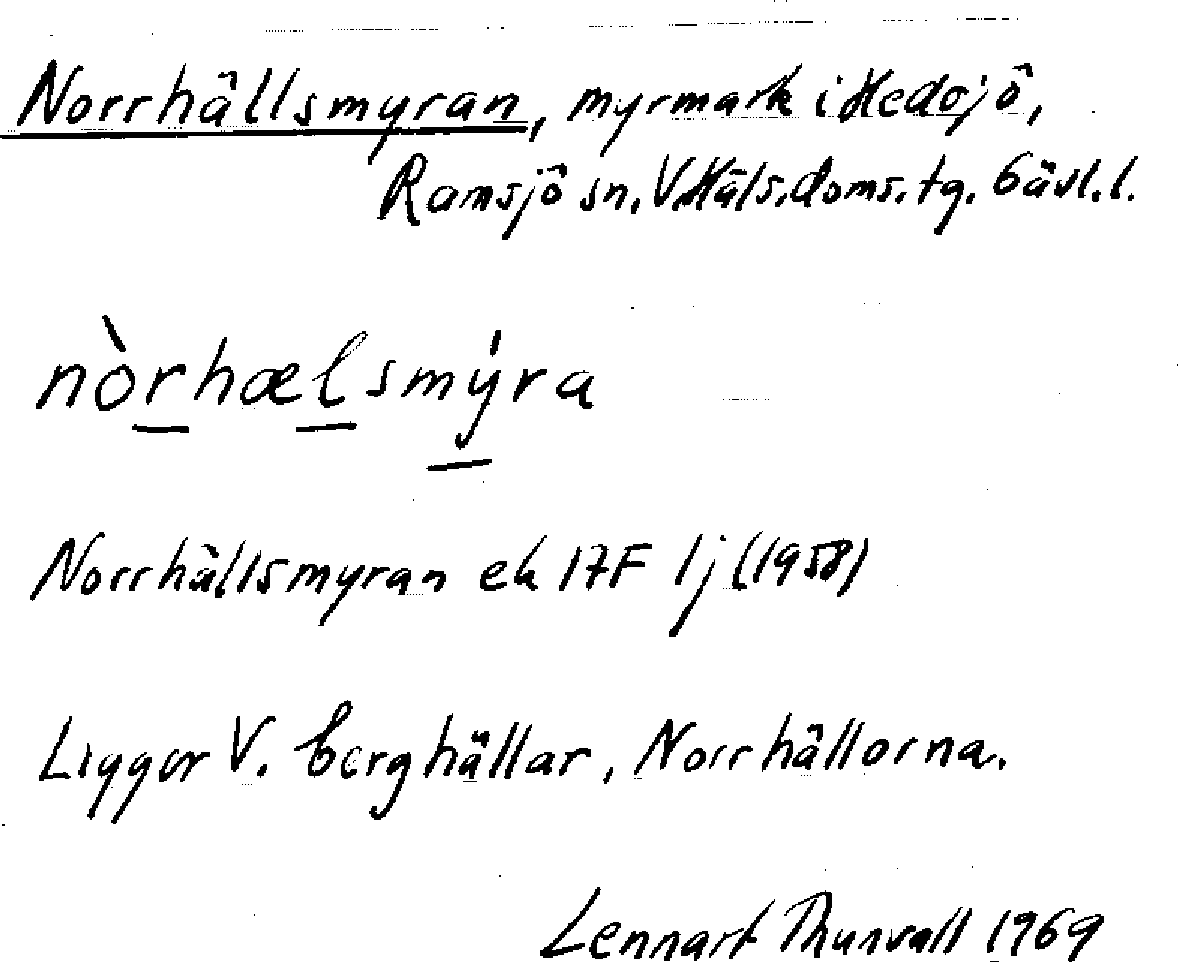 Norrhällsmyran, myrmark i Hedsjö,
Ramsjö sn. V Häls. doms. tg. Gävl. l.
nòrhælsmýra
Norrhällsmyran ek 17F 1j (1958)
Ligger V. berghällar, Norrhällorna.
Lennart Thunvall 1969